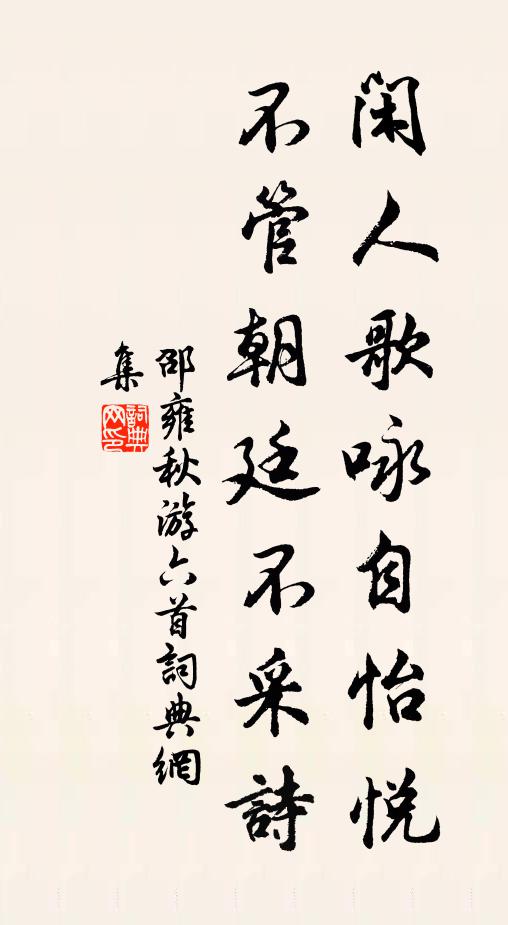 閑人歌咏自怡悅
不管朝廷不采詩
邵雍秋游六首詞典網
集
詞典网印